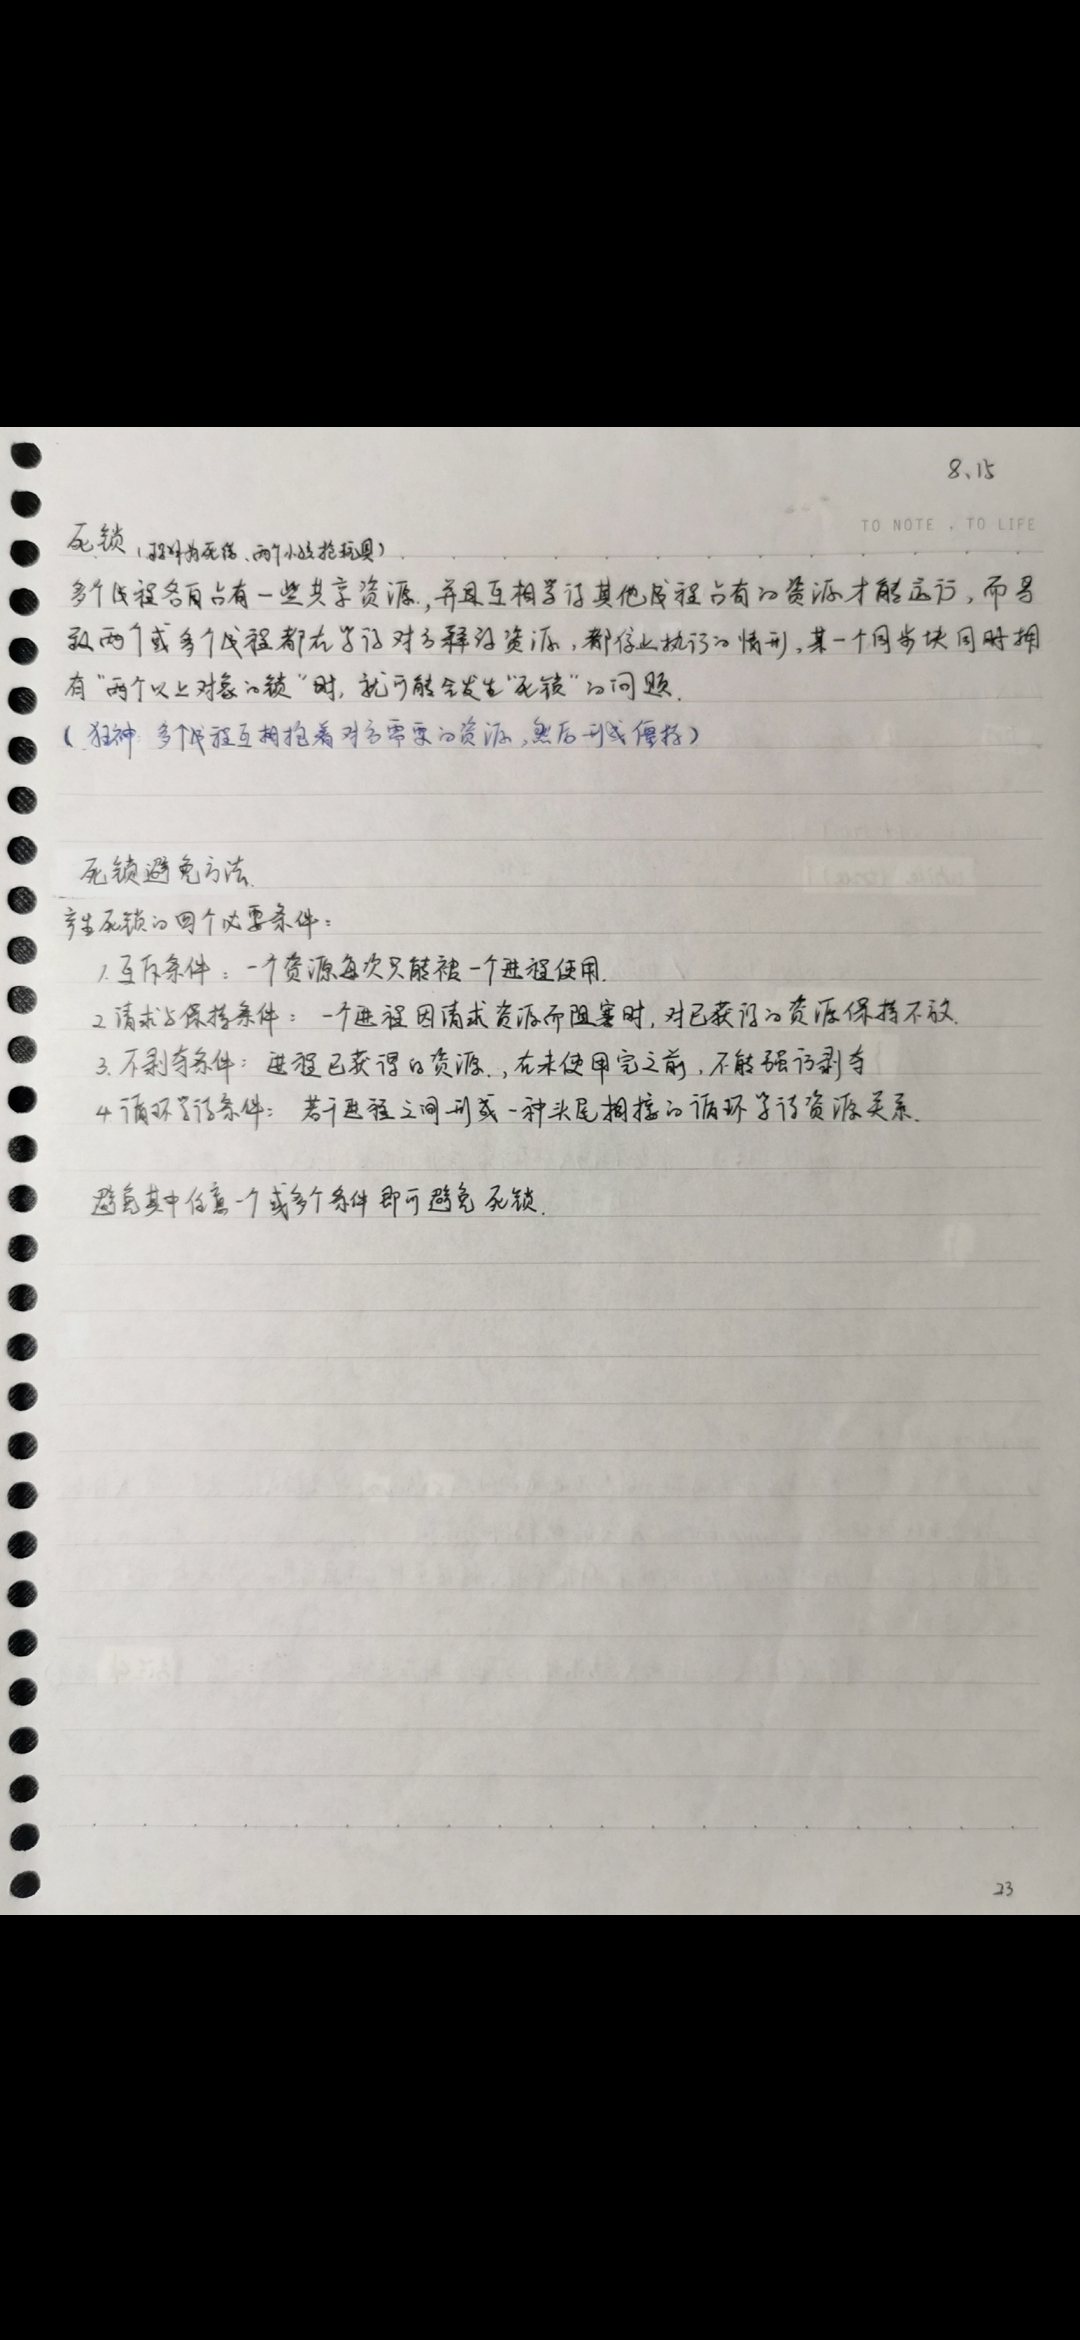 8、15
TO NOTE , TO LIFE
死锁（ 两个小孩抢玩具）
多个线程各自占有一些共享资源，并且互相等待其他线程占有的资源才能运行，而导
致两个或多个线程都在等待对方释放资源，都停止执行的情形，某一个同步块同时拥
有“两个以上对象的锁”时，就可能会发生“死锁”的问题.
（狂神：多个线程互相抱着对方需要的资源，然后形成僵持）
死锁避免方法.
产生死锁的四个必要条件：
1. 互斥条件：一个资源每次只能被一个进程使用.
2 请求与保持条件：一个进程因请求资源而阻塞时，对已获得的资源保持不放.
3. 不剥夺条件：进程已获得的资源，在未使用完之前，不能强行剥夺
4 循环等待条件：若干进程之间形成一种头尾相接的循环等待资源关系.
避免其中任意一个或多个条件即可避免死锁.
23